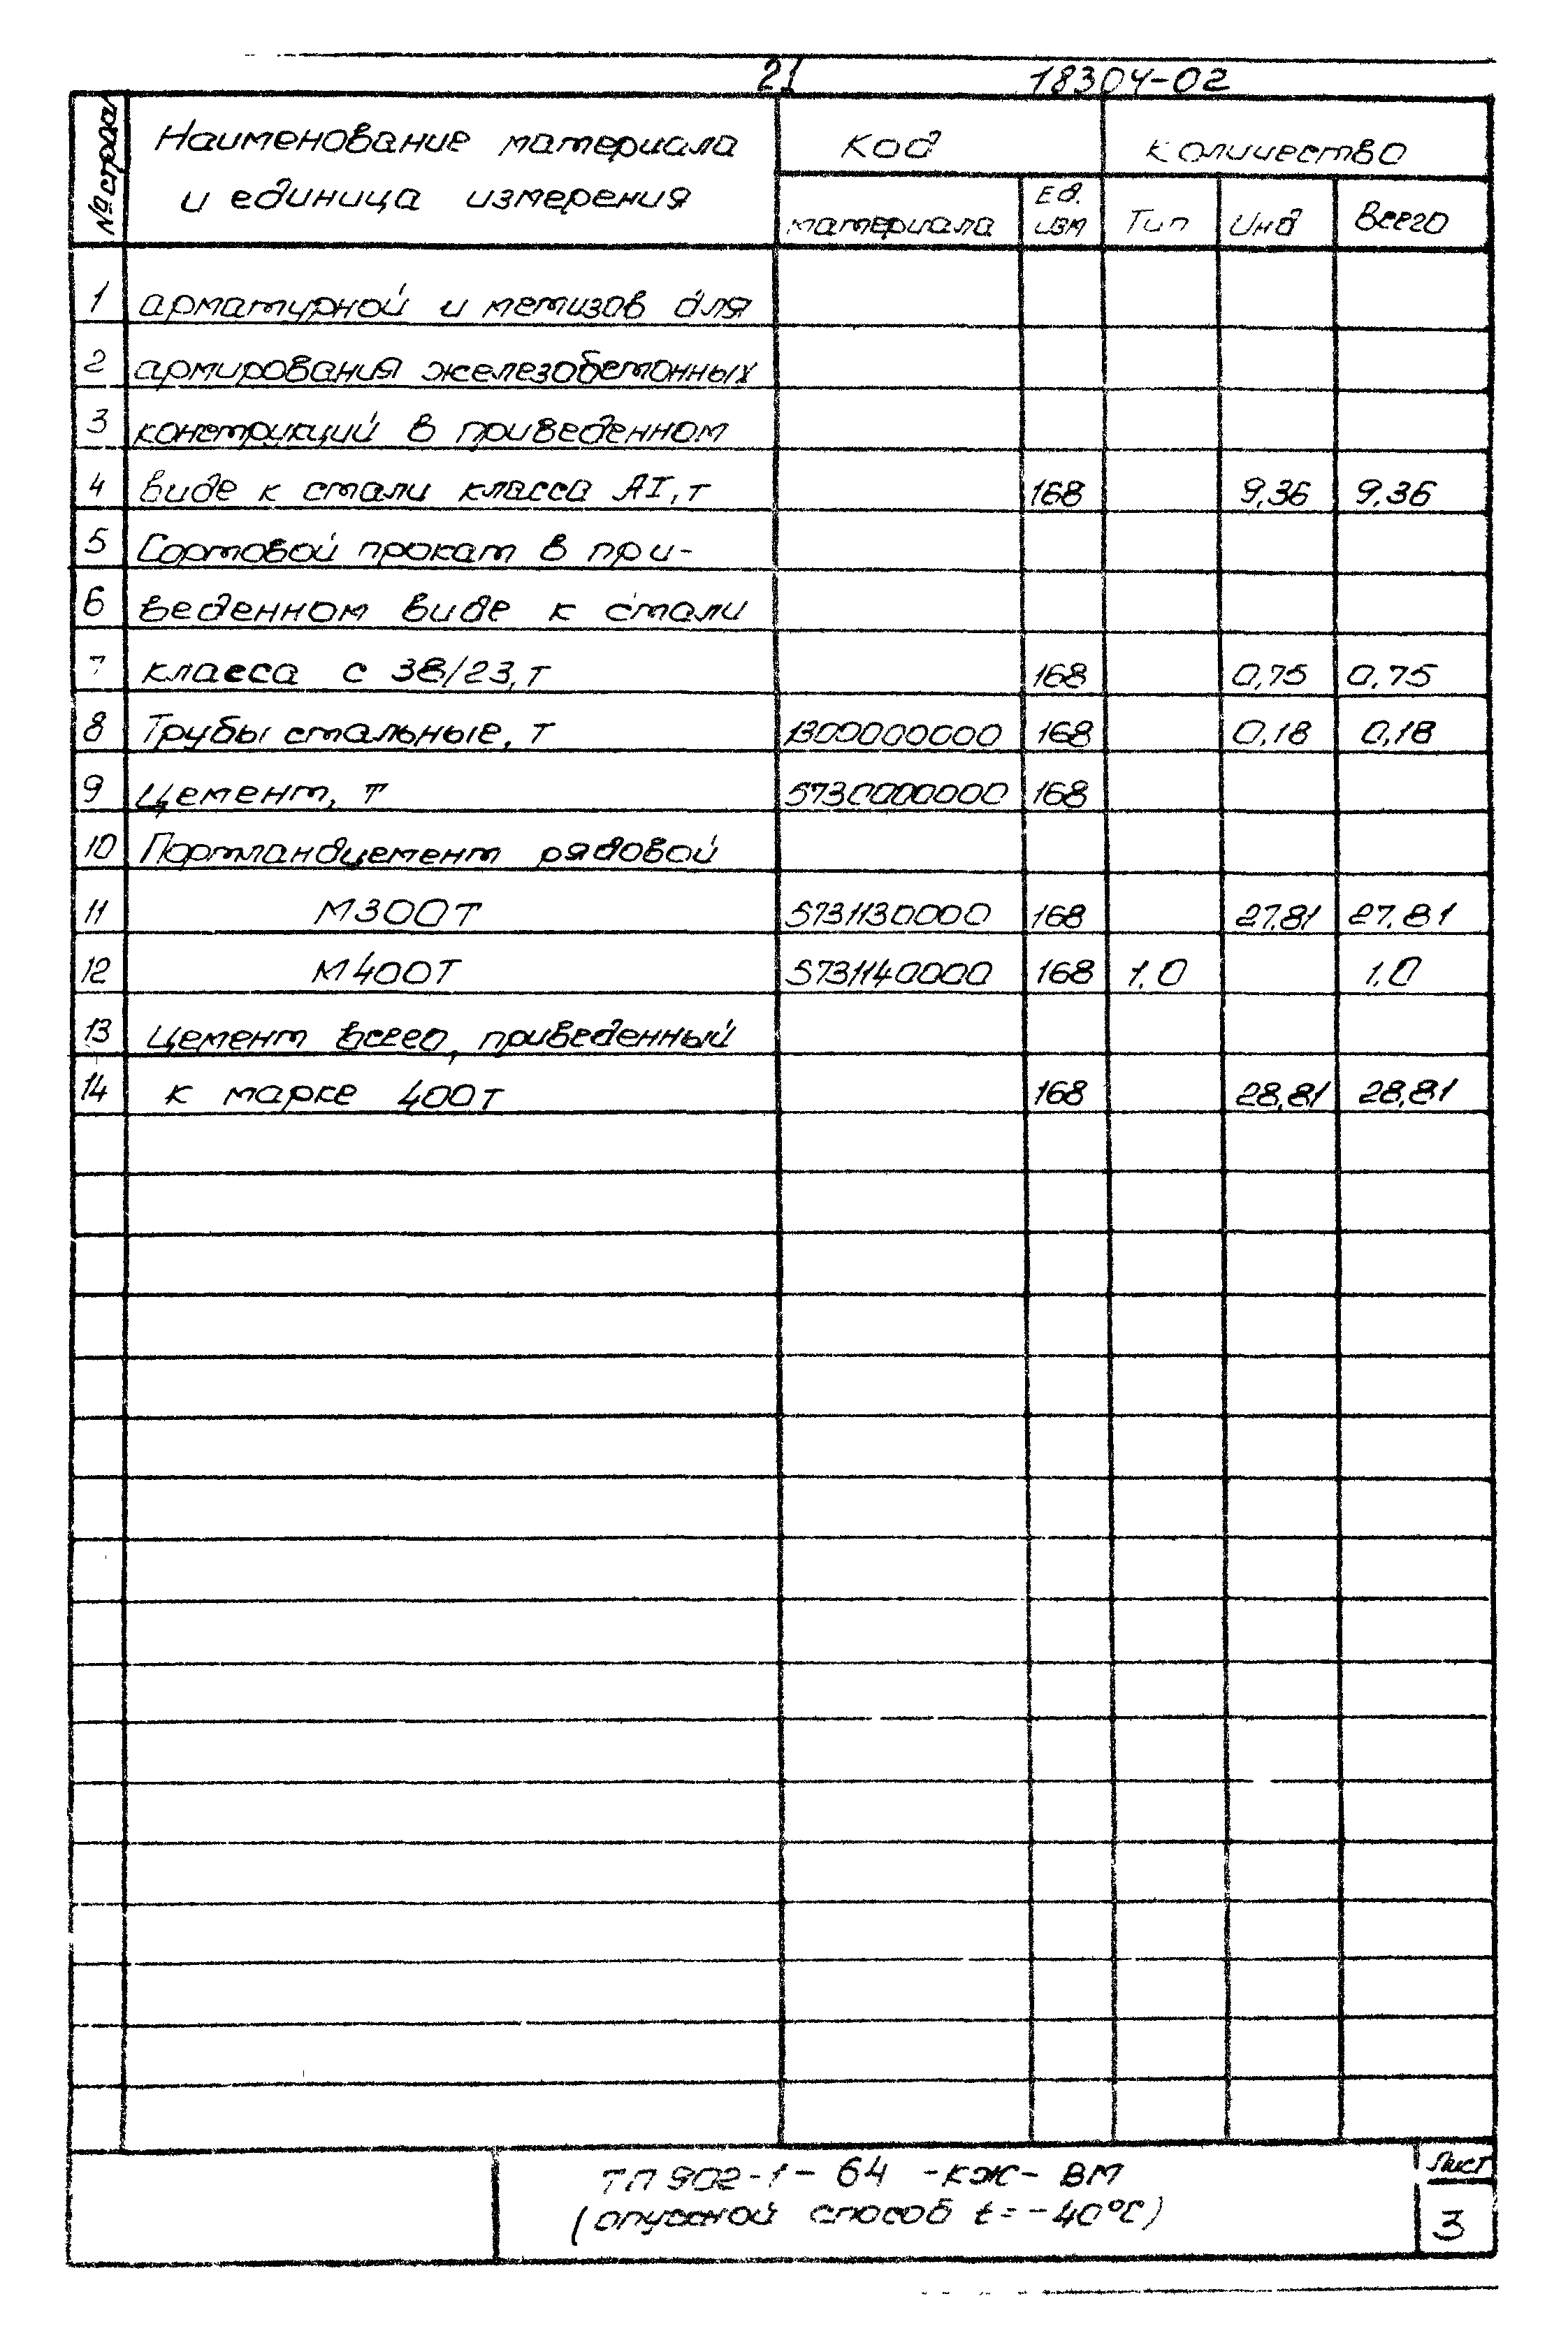 21 18304-02
№ строк Наименование материала Код Количество
и единица измерения материала Ед. изм Тип Инд Всего
1 арматурной и метизов для
2 армирования железобетонных
3 конструкций в приведенном
4 виде к стали класса АI, т 168 9,36 9,36
5 Сортовой прокат в при-
6 веденном виде к стали
7 класса с 38/23, т 168 0,75 0,75
8 Трубы стальные, т 1300000000 168 0,18 0,18
9 Цемент, т 5730000000 168
10 Портландцемент рядовой
11 М300Т 5731130000 168 27,81 27,81
12 М400Т 5731140000 168 1,0 1,0
13 Цемент всего, приведенный
14 к марке 400т 168 28,81 28,81
ТП 902-1-64 -КЖ- ВМ Лист
(опускной способ t=-40°С) 3